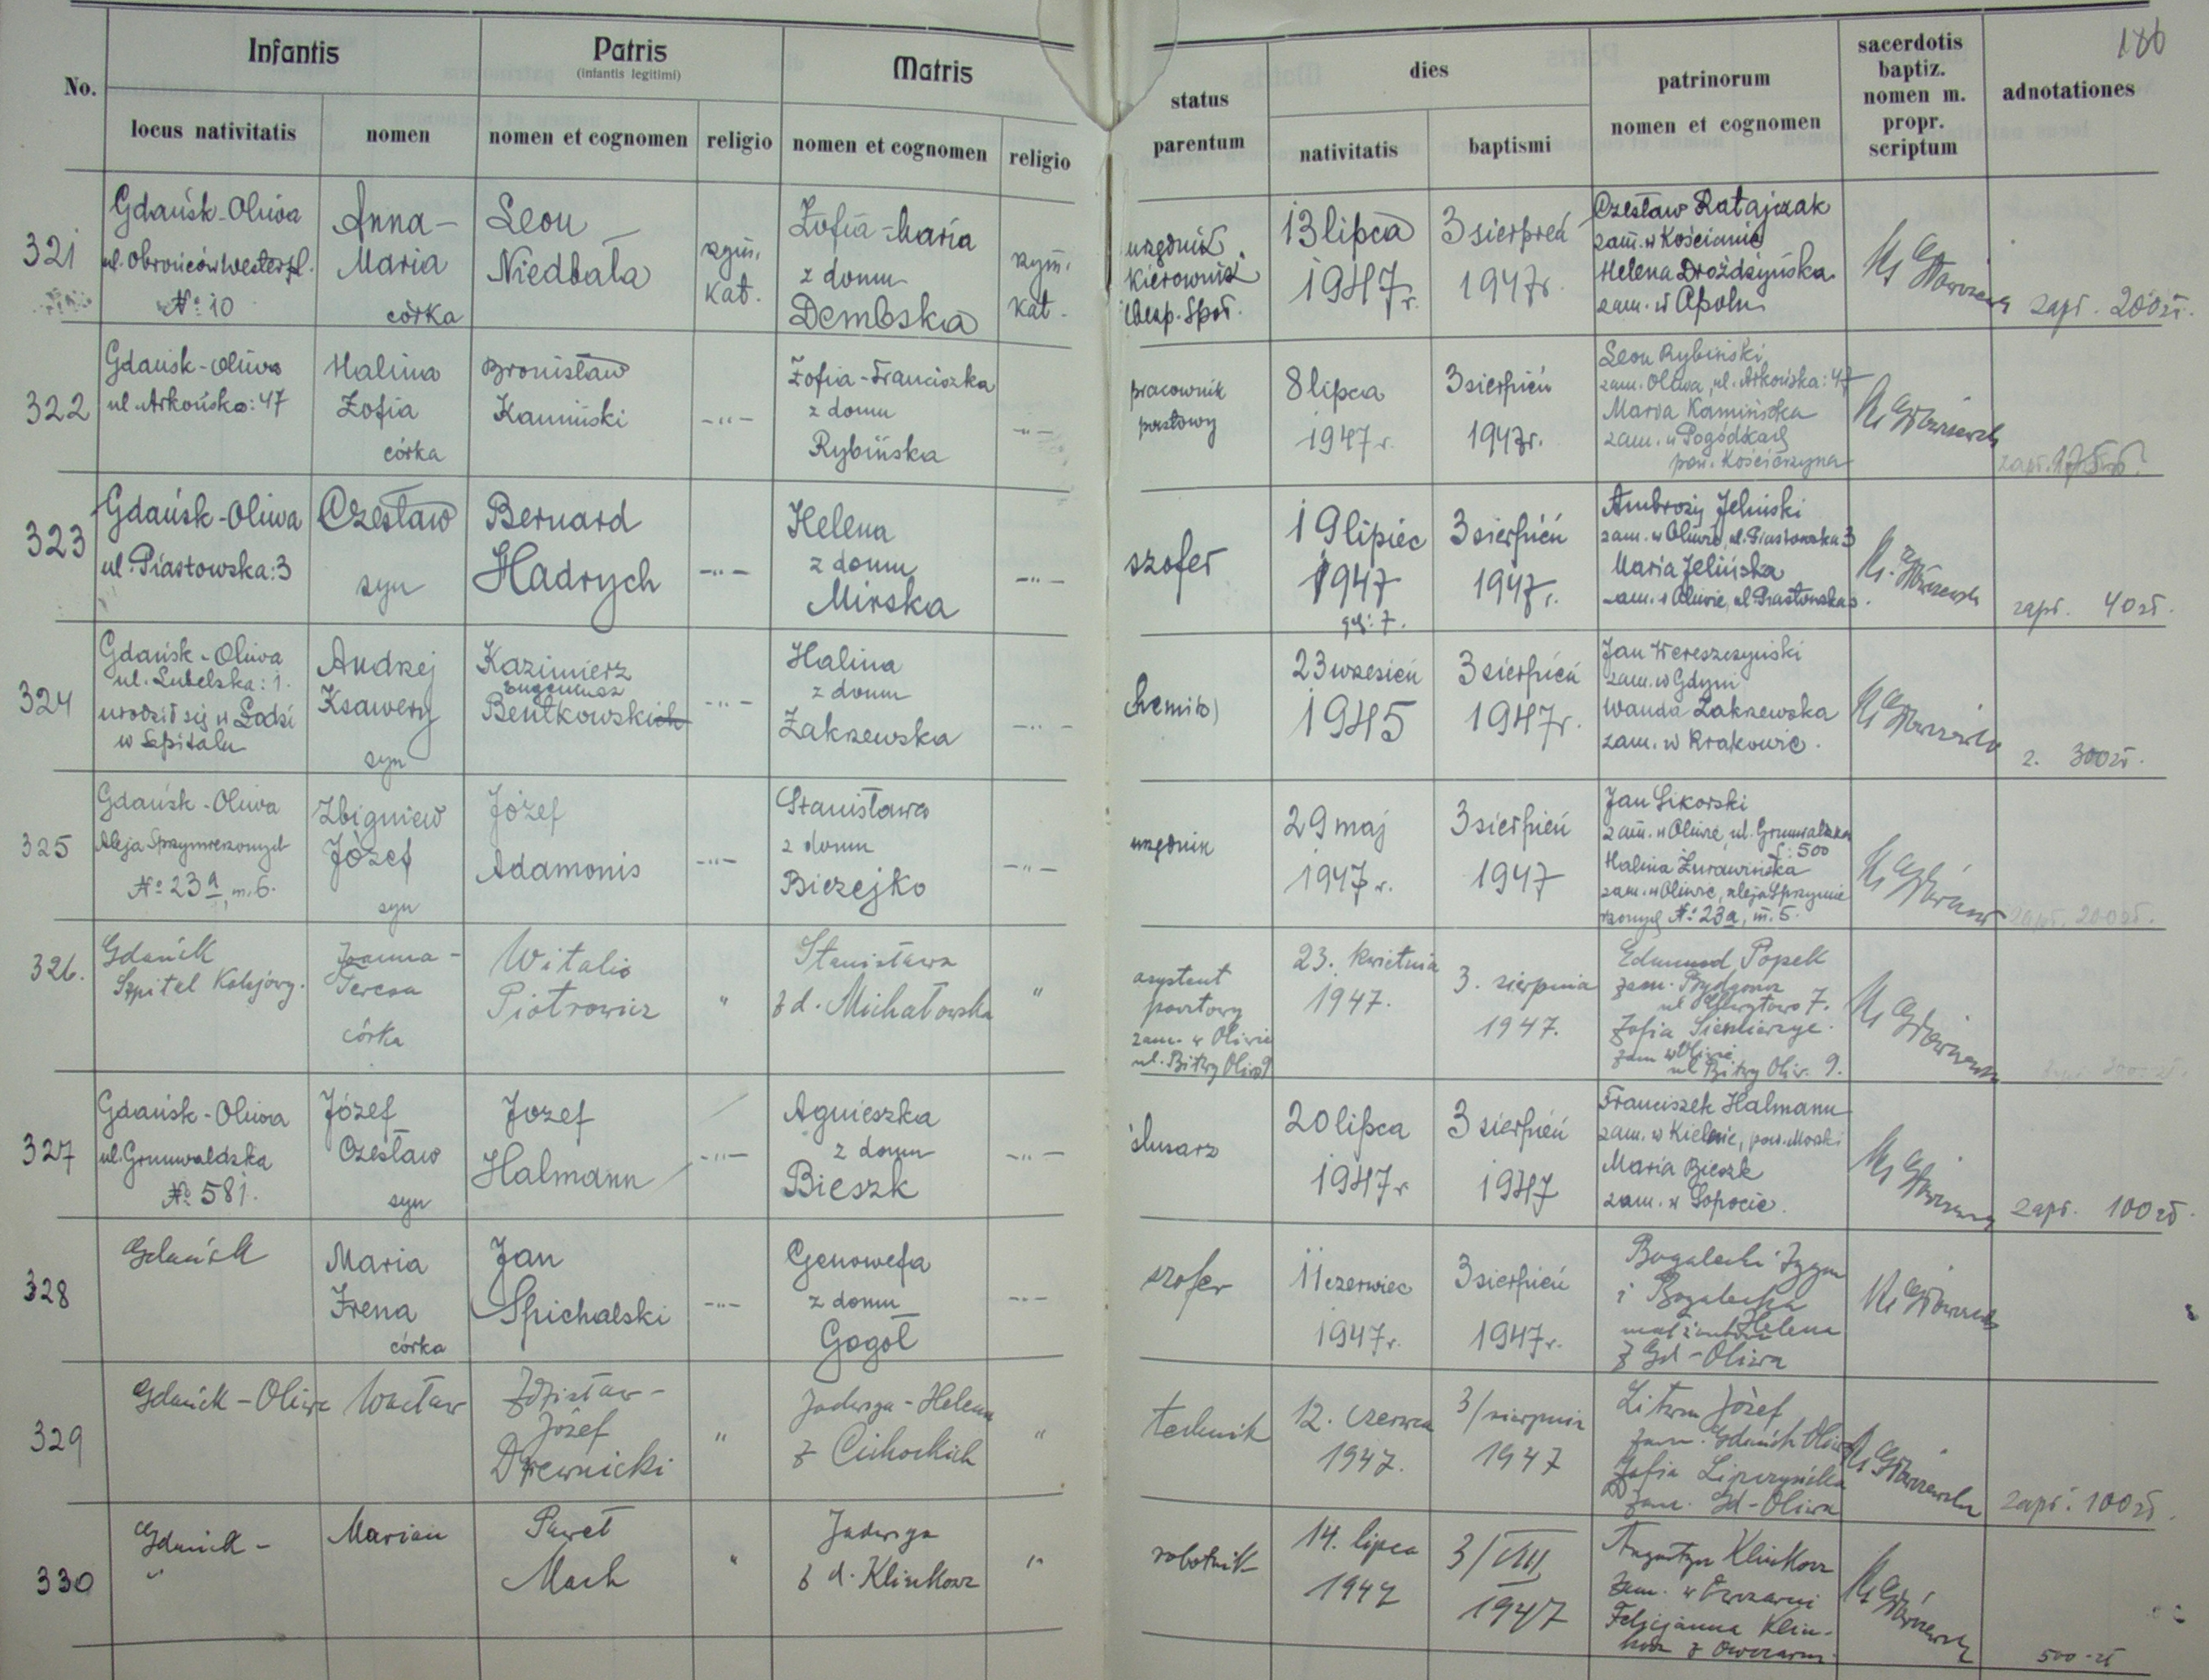 186
No.
Infantis
Patris
(infantis legitimi)
Matris
status
parentum
dies
patrinorum
nomen et cognomen
sacerdotis
baptiz.
nomen m.
propr.
scriptum
adnotationes
locus nativitatis
nomen
nomen et cognomen
religio
nomen et cognomen
religio
nativitatis
baptismi
321
Gdańsk-Oliwa
ul. Obrońców Westerpl.
№ 10
Anna-
Maria
córka
Leon
Niedbała
rzym.
kat.
Zofia-Maria
z domu
Dembska
rzym.
kat.
urzędnik
kierownik
Społ.
13 lipca
1947 r.
3 sierpień
1947 r.
Czesław Ratajczak
zam. w Kościanie
Helena Drożdżyńska
zam. w Opolu
zapł. 200 zł.
322
Gdańsk-Oliwa
ul. Arkońska: 47
Halina
Zofia
córka
Bronisław
Kamiński
-"-
Zofia-Franciszka
z domu
Rybińska
-"-
pracownik
pocztowy
8 lipca
1947 r.
3 sierpień
1947 r.
Leon Rybiński
zam. Oliwa, ul. Arkońska: 47
Maria Kamińska
zam. w Pogódkach
pow. Kościerzyna
zapł.
323
Gdańsk-Oliwa
ul. Piastowska: 3
Czesław
syn
Bernard
Hadrych
-"-
Helena
z domu
Mirska
-"-
szofer
19 lipiec
1947
3 sierpień
1947 r.
Ambroży Jeliński
zam. w Oliwie, ul. Piastowska 3
Maria Jelińska
zam. w Oliwie, ul. Piastowska 3.
zapł. 40 zł.
324
Gdańsk-Oliwa
ul. Lubelska: 1.
urodził się w Łodzi
w Szpitalu
Andrzej
Ksawery
syn
Kazimierz
Eugeniusz
Bentkowski
-"-
Halina
z domu
Zakrzewska
-"-
chemik
23 wrzesień
1945
3 sierpień
1947 r.
Jan Wereszczyński
zam. w Gdyni
Wanda Zakrzewska
zam. w Krakowie.
z. 300 zł.
325
Gdańsk-Oliwa
Aleja Sprzymierzonych
№ 23a, m. 6.
Zbigniew
Józef
syn
Józef
Adamonis
-"-
Stanisława
z domu
Biezejko
-"-
urzędnik
29 maj
1947 r.
3 sierpień
1947
Jan Sikorski
zam. w Oliwie, ul. Grunwaldzka
: 500
Halina Żurawińska
zam. w Oliwie, aleja Sprzymie
rzonych № 23a, m. 5.
zapł. 200 zł.
326.
Gdańsk
Szpital Kolejowy.
Joanna-
Teresa
córka
Witalis
Piotrowicz
"
Stanisława
z d. Michałowska
"
asystent
pocztowy
zam. w Oliwie
ul. Bitwy Oliw. 9
23. kwietnia
1947.
3. sierpnia
1947.
Edmund Popek
zam. Bydgoszcz
7.
Zofia
zam w Oliwie
ul Bitwy Oliw. 9.
327
Gdańsk-Oliwa
ul. Grunwaldzka
№ 581.
Józef
Czesław
syn
Jozef
Halmann
-"-
Agnieszka
z domu
Bieszk
-"-
ślusarz
20 lipca
1947 r
3 sierpień
1947
Franciszek Halmann
zam. w Kielnie, pow. Morski
Maria Bieszk
zam. w Sopocie.
zapł. 100 zł.
328
Gdańsk
Maria
Irena
córka
Jan
Spichalski
-"-
Genowefa
z domu
Gogoł
-"-
szofer
11 czerwiec
1947 r.
3 sierpień
1947 r.
Bogalecki
i Bogalecka
Helena
z Gd-Oliwa
329
Gdańsk-Oliwa
Wacław
Zdzisław-
Józef
Drewnicki
"
Jadwiga-Helena
z Cichockich
"
technik
12. czerwca
1947.
3/sierpnia
1947
Litwin Józef
zam. Gdańsk Oliwa
Zofia Lipczyńska
zam. Gd-Oliwa
zapł. 100 zł.
330
Gdańsk-
"
Marian
Paweł
Mach
"
Jadwiga
z d. Klinkosz
"
robotnik
14. lipca
1947
3/VIII
1947
Augustyn Klinkosz
zam. w Owczarni
Felicjanna Klin-
kosz z Owczarni
500-zł